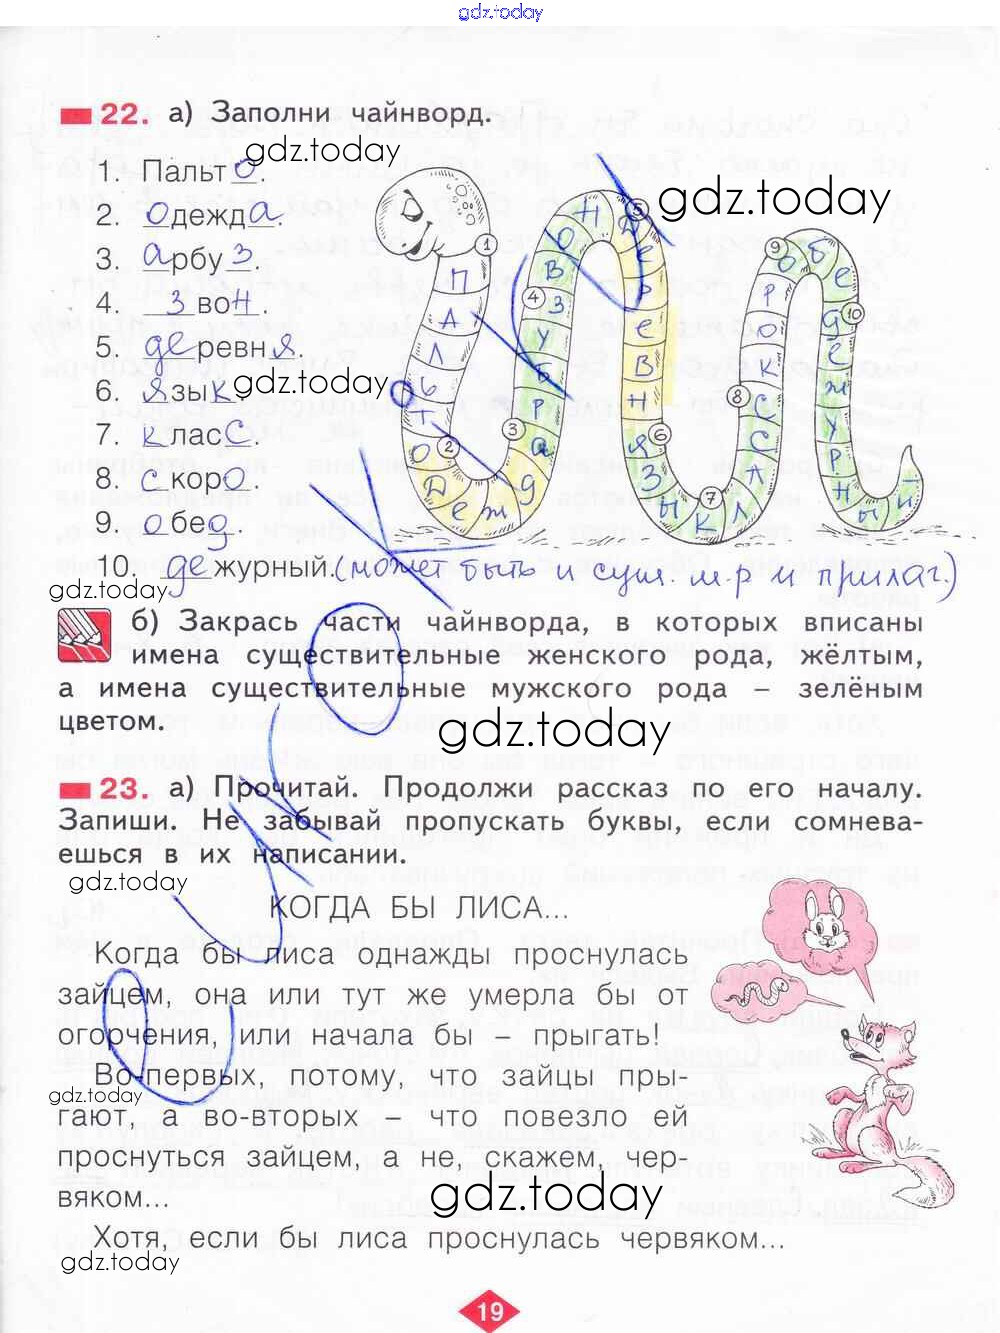 gdz.today
22. а) Заполни чайнворд.
gdz.today
1. Пальто.
gdz.today
2. одежда.
3. арбуз.
4. звон.
5. деревня.
gdz.today
6. язык.
7. класс.
8. скоро.
9. обед
10. дежурный. (может быть и сущ. м.р и прилаг.)
gdz.today
б) Закрась части чайнворда, в которых вписаны
имена существительные женского рода, жёлтым,
а имена существительные мужского рода – зелёным
цветом.
gdz.today
23. а) Прочитай. Продолжи рассказ по его началу.
Запиши. Не забывай пропускать буквы, если сомнева-
ешься в их написании.
gdz.today
КОГДА БЫ ЛИСА...
Когда бы лиса однажды проснулась
зайцем, она или тут же умерла бы от
огорчения, или начала бы – прыгать!
Во-первых, потому, что зайцы пры-
gdz.today
гают, а во-вторых – что повезло ей
проснуться зайцем, а не, скажем, чер-
вяком...
gdz.today
Хотя, если бы лиса проснулась червяком...
gdz.today
19
1
П
А
Л
Ь
Т
О
2
Д
е
ж
д
а
3
р
б
у
з
4
в
о
н
5
д
е
р
е
в
н
я
6
з
ы
к
7
л
а
с
с
8
к
о
р
о
9
б
е
д
10
е
ж
у
р
н
ы
й